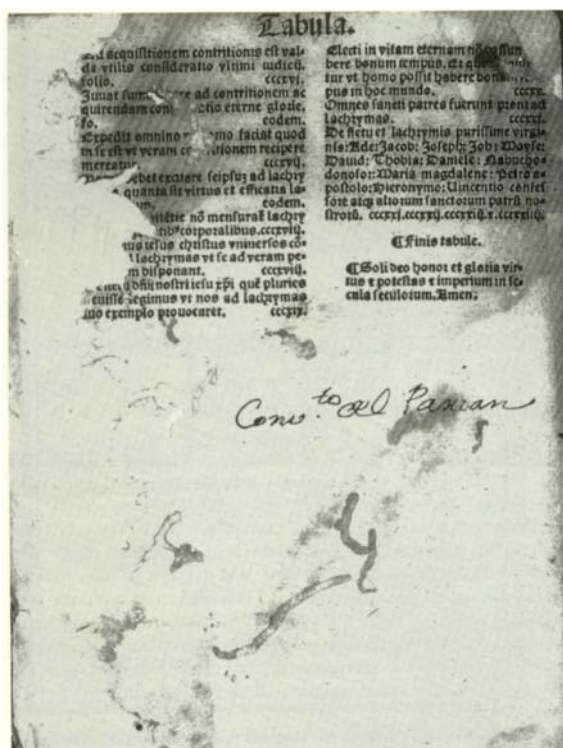 Tabula.
Ad acquisitionem contritionis est val-
de vtilis consideratio vltimi iudicij.
folio. cccxvi.
Juuat sum ere ad contritionem ac
quirendam con tio eterne glorie.
fo. eodem.
Expedit omnino mo faciat quod
in se est vt veram c tionem recipere
mereatur. cccxvij.
debet excitare seipsum ad lachry
quanta sit virtus et efficatia la-
eodem.
nō mensurat lachry
corporalibus. cccxviij.
us iesus christus vniuersos cō-
lachrymas vt se ad veram pe-
m disponant. cccxviij.
dn̄i nostri iesu xp̄i quē pluries
legimus vt nos ad lachrymas
suo exemplo prouocaret. cccxix.
Electi in vitam eternam nō possun
bere bonum tempus. Et
tur vt homo possit habere bonum
pus in hoc mundo. cccxx.
Omnes sancti patres fuerunt proni ad
lachrymas. cccxxi.
De fletu et lachrymis purissime virgi-
nis: Ade: Jacob: Joseph: Job: Moyse:
Dauid: Thobia: Daniele: Nabucho-
donosor: Maria magdalene: Petro a-
postolo: Hieronymo: Uincentio confes
sore atq3 aliorum sanctorum patrū no-
strorū. cccxxj. cccxxij. cccxxiij. ⁊. cccxxiiij.
¶ Finis tabule.
¶ Soli deo honor et gloria vir-
tus ⁊ potestas ⁊ imperium in se-
cula seculorum. Amen.
Conv.to del Parian